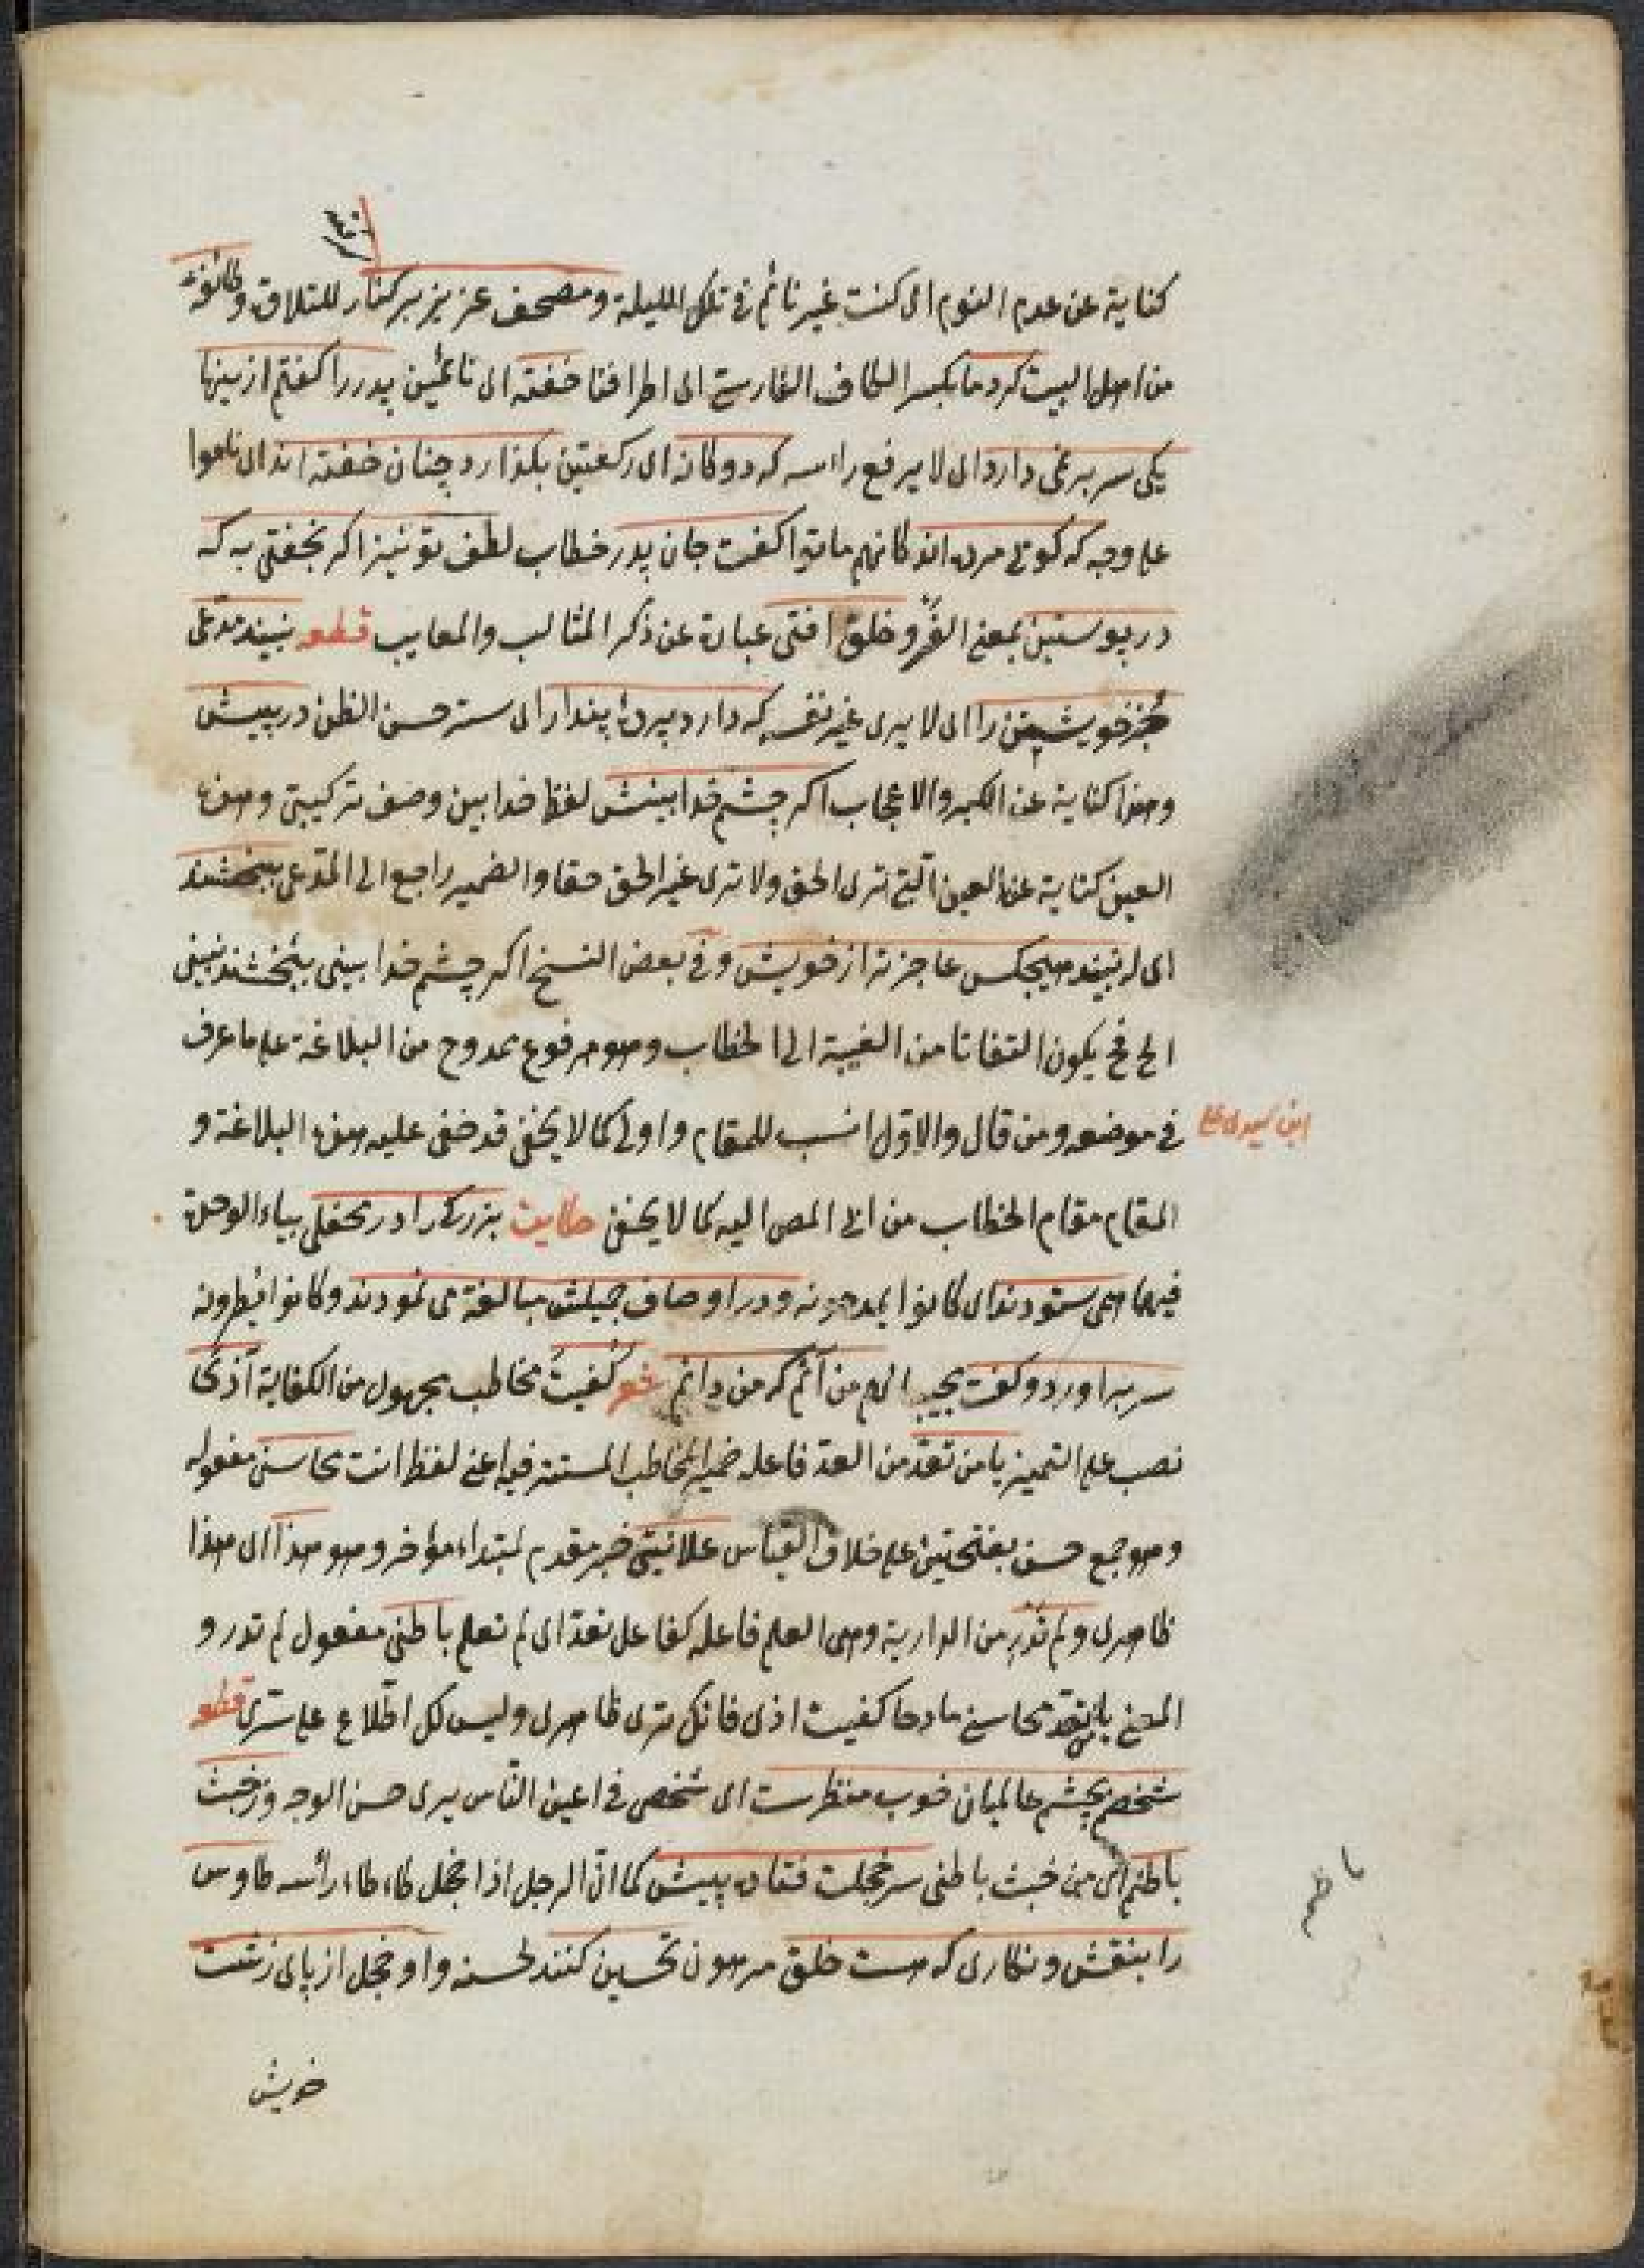 كناية عن عدم النوم اى كنت غير نائم فى تلك الليلة ومصحف عزيز بر كنار للتلاوة وطائفة
من اهل البيت كرد ما بكسر الكاف الفارسى اى اطرافنا خفته اى نائمين پدر را كفتم ازينها
يكى سر بر نمى دارد اى لا يرفع راسه كه دوكانه اى ركعتين بكذارد چنان خفته اند اى ناموا
على وجه كه كوئى مرده اند كانهم ماتوا كفت جان پدر خطاب لطف تو نيز اكر بخفتى به كه
در پوستين بمعنى الفرو خلق افتى عبارة عن ذكر المثالب والمعايب قطعه نبيند مدعى
جز خويشتن را اى لا يرى غير نفسه كه دارد پرده پندار اى ستر حسن الظن در پيش
وهذا كناية عن الكبر والاعجاب اكر چشم خدا بينش لفظ خدا بين وصف تركيبى وهذه
العين كناية عن العين التى ترى الحق ولا ترى غير الحق حقا والضمير راجع الى المدعى ببخشند
اى نبيند هيچكس عاجزتر از خويش وفى بعض النسخ اكر چشم خدا بينى ببخشند نبينى
الخ فح يكون التفاتا من الغيبة الى الخطاب وهو مرفوع ممدوح من البلاغة على ما عرف
فى موضعه ومن قال والاول انسب للمقام واولى كما لا يخفى قد خفى عليه هذه البلاغة و
ابن سيدى على
المقام مقام الخطاب من المص اليه كما لا يخفى حكايت بزركى را در محفلى بياء الوحدة
فيهما همى ستودند اى كانوا يمدحونه ودر اوصاف جميلش مبالغة مى نمودند وكانوا يطرونه
سر بر اورد وكفت من آنم كه من دانم شعر كفيت مخاطب مجهول من الكفاية أذى
نصب على التمييز يا من تعد من العد فاعله ضمير المخاطب المستتر فيه اعنى لفظ انت محاسنى مفعوله
وهو جمع حسن بفتحتين على خلاف القياس علانيتى خبر مقدم لمبتداء مؤخر وهو هذا اى هذا
ظاهرى ولم تدر من الدارية وهى العلم فاعله كفاعل تعد اى لم تعلم باطنى مفعول لم تدر و
المعنى يا من تعد محاسنى مادحا كفيت اذى فانك ترى ظاهرى وليس لك اطلاع على سرى قطعه
شخصم بچشم عالميان خوب منظرست اى شخصى فى اعين الناس يرى حسن الوجه وز خبث
باطنم اى من خبث باطنى سر خجلت فتاده پيش كما ان الرجل اذا خجل طاطا راسه طاوس
را بنقش ونكارى كه هست خلق مرهون تحسين كنند لحسنه واو خجل از پاى زشت
خويش